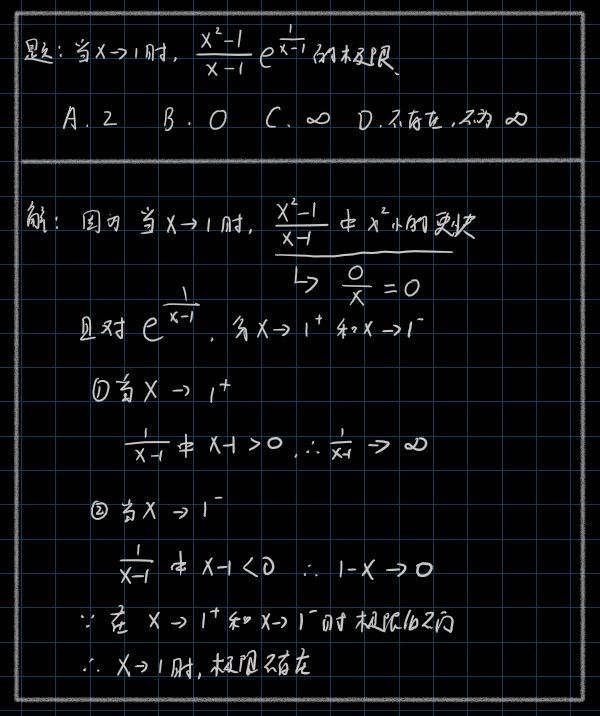 题:当x→1时, \frac{x²-1}{x-1} e^{\frac{1}{x-1}} 的极限.
A. 2 B. 0 C. ∞ D. 不存在,不为 ∞
解: 因为 当x→1时, \frac{x²-1}{x-1} 中 x²小的更快
↳ \frac{0}{x} = 0
且对 e^{\frac{1}{x-1}}, 分x→1⁺ 和x→1⁻
① 当x → 1⁺
\frac{1}{x-1} 中 x-1>0, ∴ \frac{1}{x-1} → ∞
② 当x → 1⁻
\frac{1}{x-1} 中 x-1<0 ∴ 1-x → 0
∵ 在 x → 1⁺ 和 x→1⁻ 时 极限值不同
∴ x→1时, 极限不存在